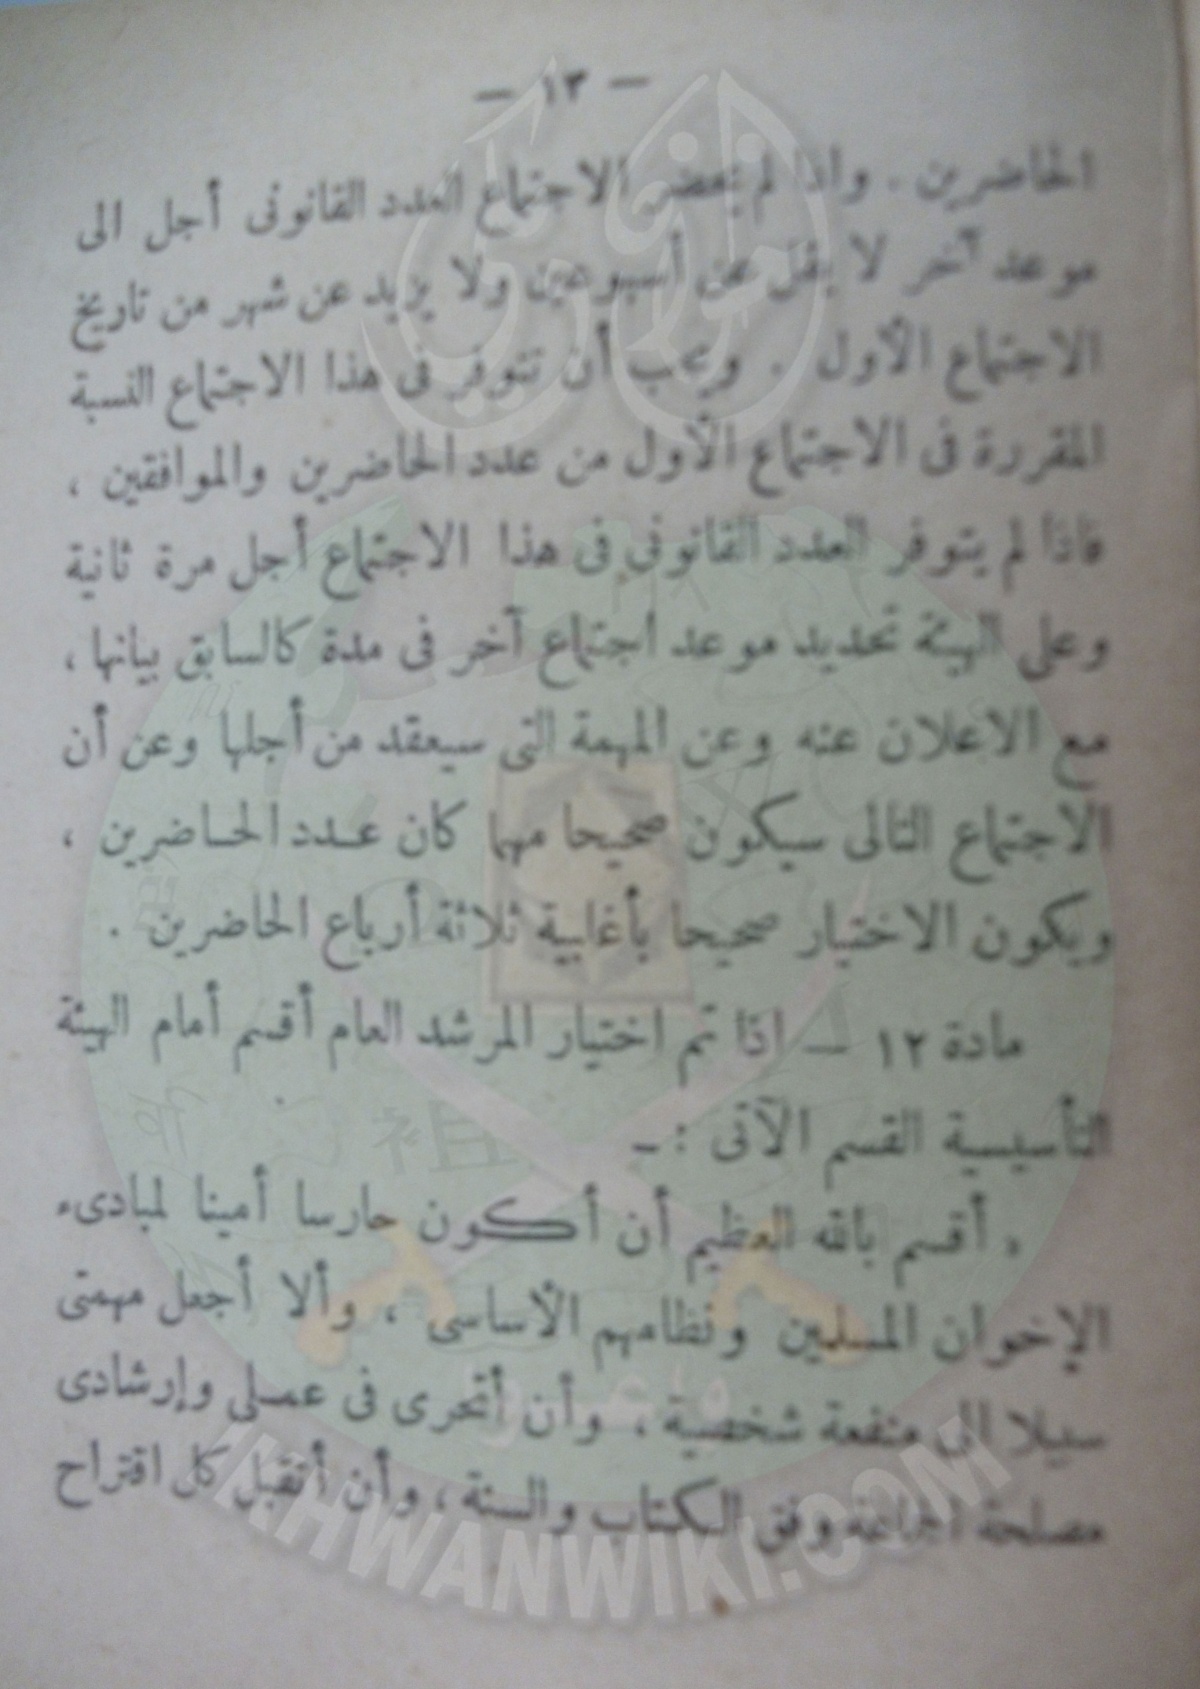 — ١٣ —
الحاضرين . واذا لم يحضر الاجتماع العدد القانونى أجل الى
موعد آخر لا يقل عن أسبوعين ولا يزيد عن شهر من تاريخ
الاجتماع الأول . ويجب أن تتوفر فى هذا الاجتماع النسبة
المقررة فى الاجتماع الأول من عدد الحاضرين والموافقين ،
فاذا لم يتوفر العدد القانونى فى هذا الاجتماع أجل مرة ثانية
وعلى الهيئة تحديد موعد اجتماع آخر فى مدة كالسابق بيانها ،
مع الاعلان عنه وعن المهمة التى سيعقد من أجلها وعن أن
الاجتماع التالى سيكون صحيحا مهما كان عدد الحاضرين ،
ويكون الاختيار صحيحا بأغلبية ثلاثة أرباع الحاضرين .
مادة ١٢ — اذا تم اختيار المرشد العام أقسم أمام الهيئة
التأسيسية القسم الآتى : -
« أقسم بالله العظيم أن أكون حارسا أمينا لمبادىء
الإخوان المسلمين ونظامهم الأساسى ، وألا أجعل مهمتى
سبيلا الى منفعة شخصية ، وأن أتحرى فى عملى وإرشادى
مصلحة الجماعة وفق الكتاب والسنة ، وأن أتقبل كل اقتراح
IKHWANWIKI.COM